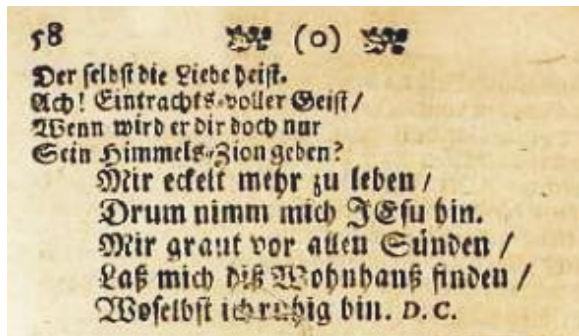 58 (o)
Der selbst die Liebe heist.
Ach! Eintrachts-voller Geist /
Wenn wird er dir doch nur
Sein Himmels-Zion geben?
Mir eckelt mehr zu leben /
Drum nimm mich JEsu hin.
Mir graut vor allen Sünden /
Laß mich diß Wohnhauß finden /
Woselbst ich ruhig bin. D. C.